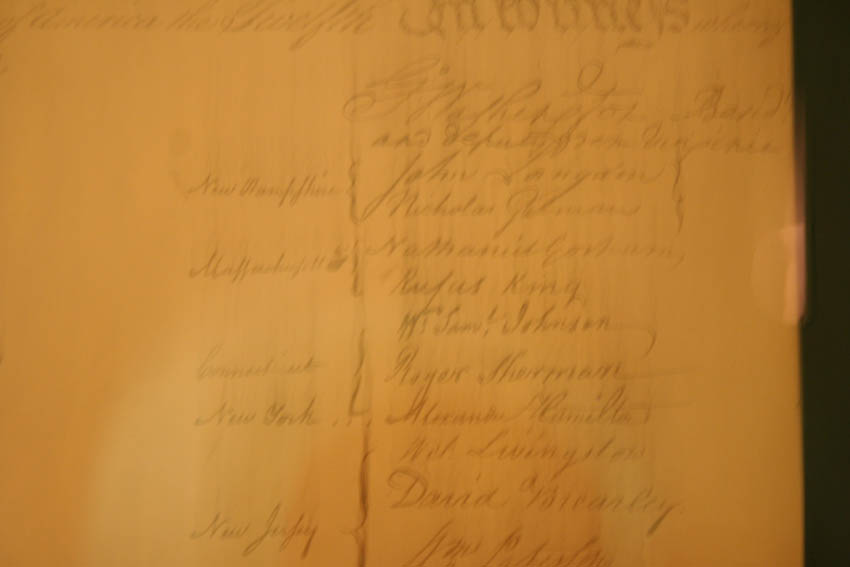 of America the Twelfth In Witness whereof
G°. Washington Presid't
and deputy from Virginia
New Hampshire
John Langdon
Nicholas Gilman
Massachusetts
Nathaniel Gorham
Rufus King
Connecticut
Wm. Saml. Johnson
Roger Sherman
New York . . .
Alexander Hamilton
New Jersey
Wil: Livingston
David Brearley.
Wm. Paterson